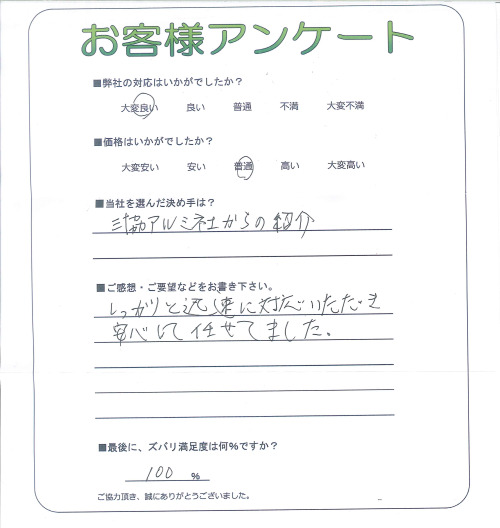 お客様アンケート
■弊社の対応はいかがでしたか?
大変良い 良い 普通 不満 大変不満
■価格はいかがでしたか?
大変安い 安い 普通 高い 大変高い
■当社を選んだ決め手は?
三協アルミ社からの紹介
■ご感想・ご要望などをお書き下さい。
しっかりと迅速に対応いただき
安心して任せてました。
■最後に、ズバリ満足度は何%ですか?
100 %
ご協力頂き、誠にありがとうございました。